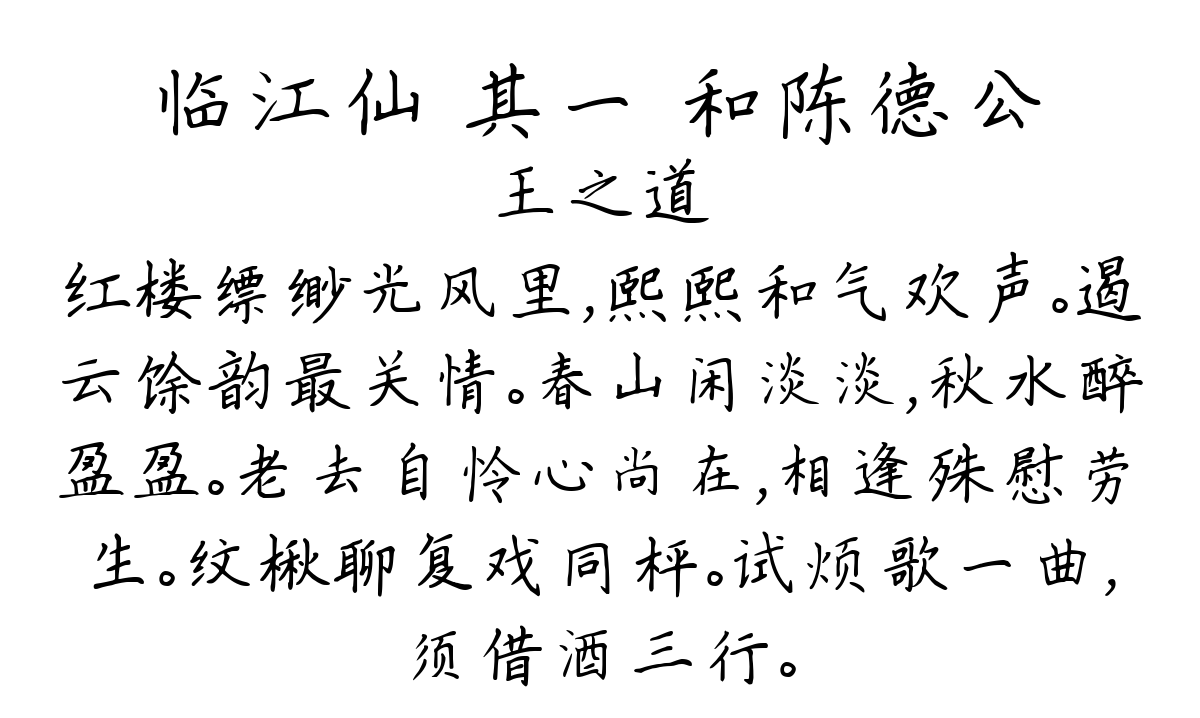 临江仙 其一 和陈德公
王之道
红楼缥缈光风里,熙熙和气欢声。遏
云馀韵最关情。春山闲淡淡,秋水醉
盈盈。老去自怜心尚在,相逢殊慰劳
生。纹楸聊复戏同枰。试烦歌一曲,
须借酒三行。